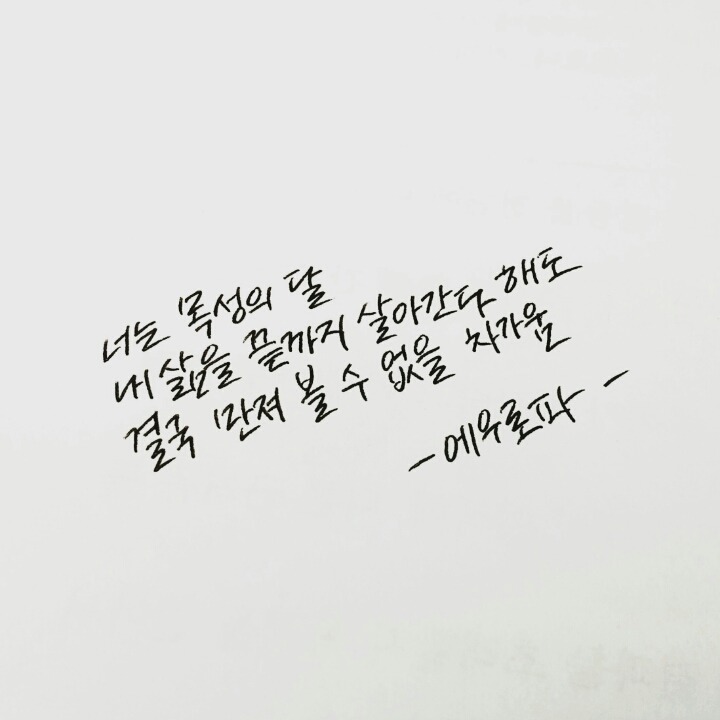 너는 목성의 달
내 삶을 끝까지 살아간다 해도
결국 만져 볼 수 없을 차가움
- 에우로파 -